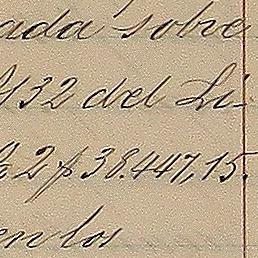 ada sobre
432 del Li-
2 $38.447,15.
en los